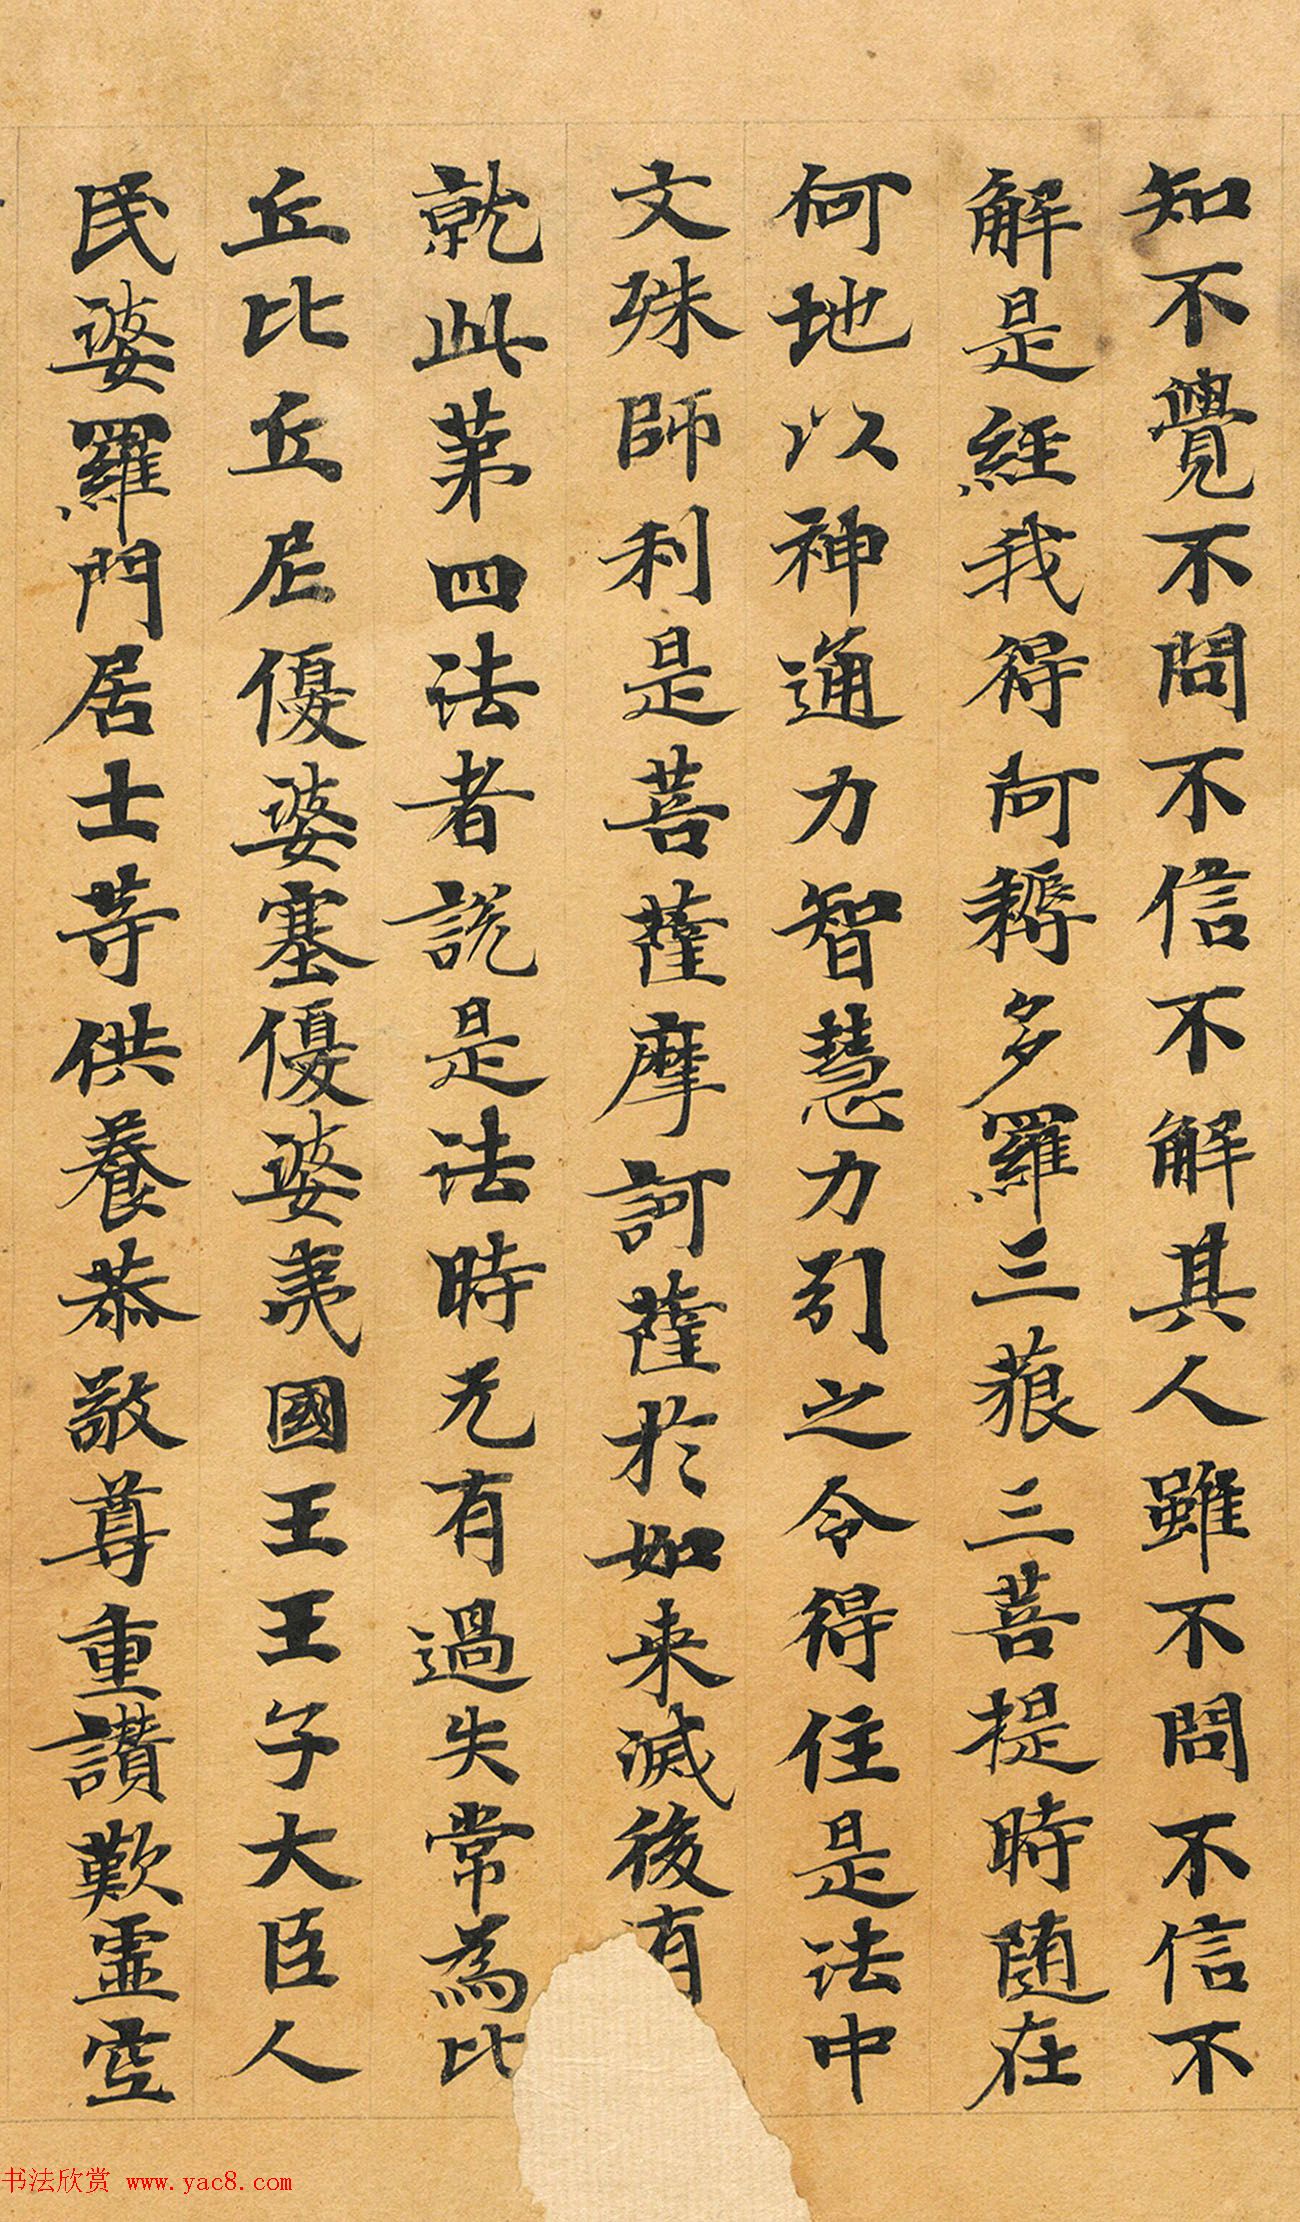 知不覺不問不信不解其人雖不問不信不
解是經我得阿耨多羅三藐三菩提時随在
何地以神通力智慧力引之令得住是法中
文殊師利是菩薩摩訶薩於如来滅後有
就此第四法者說是法時无有過失常為比
丘比丘尼優婆塞優婆夷國王王子大臣人
民婆羅門居士等供養恭敬尊重讃歎虛空
书法欣赏 www.yac8.com